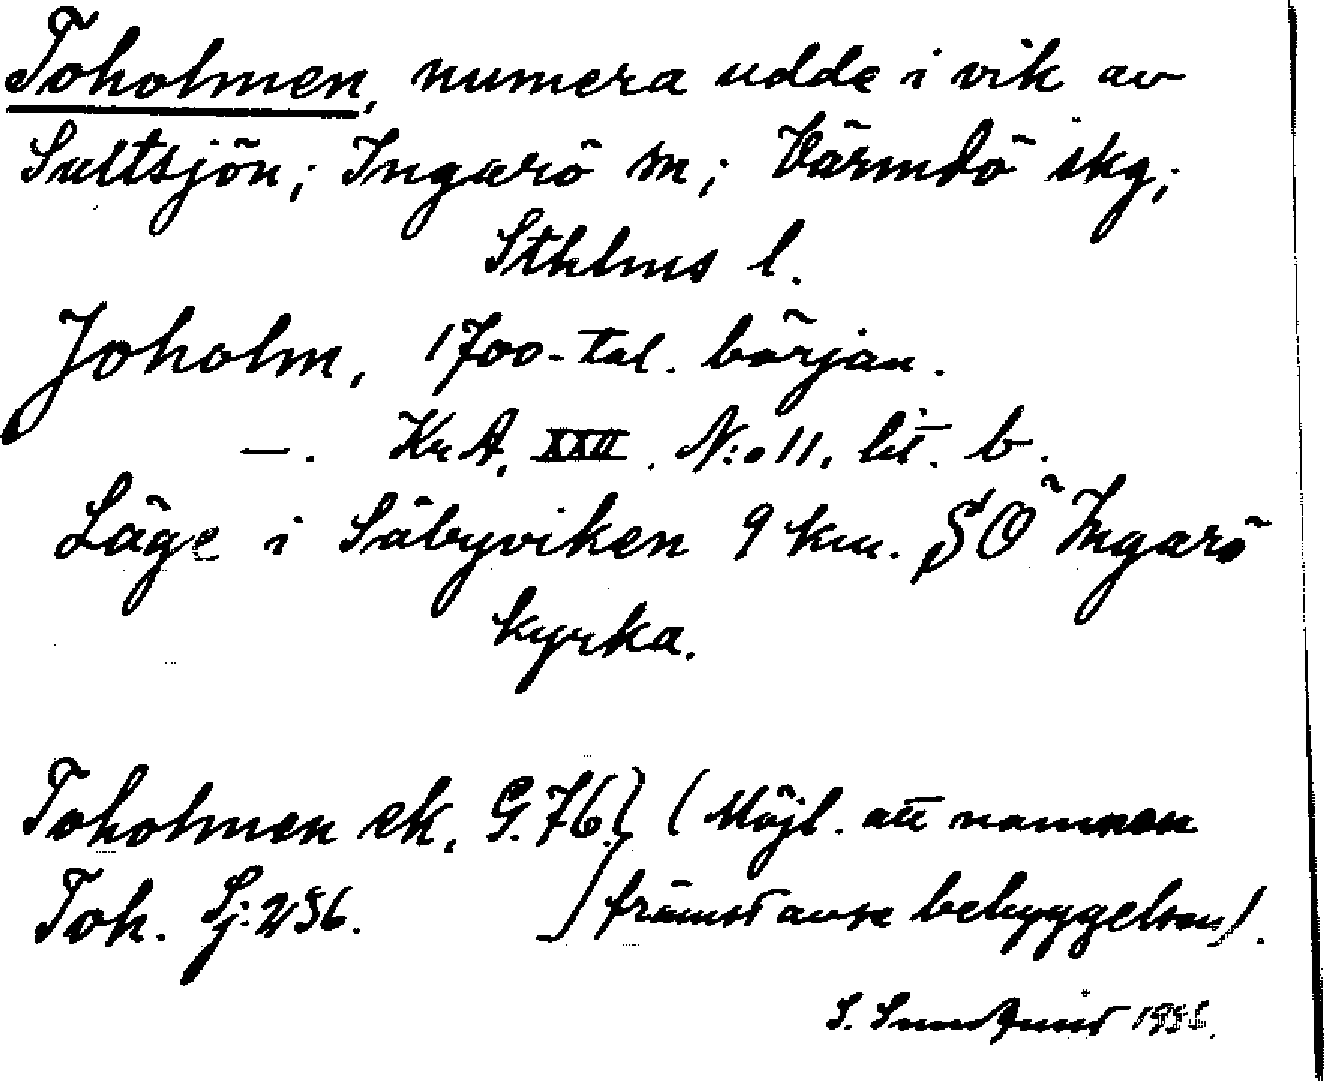 Toholmen, numera udde i vik av
Saltsjön; Ingarö sn; Värmdö skg;
Sthlms l.
Joholm, 1700-tal. början.
—. KrA. XXII. N:o 11. lit. b.
Läge i Säbyviken 9 km. SÖ Ingarö
kyrka.
Toholmen ek. G. 76. } (Möjl. att namnen
Toh. Sj: 236. främst avse bebyggelsen).
S. 19